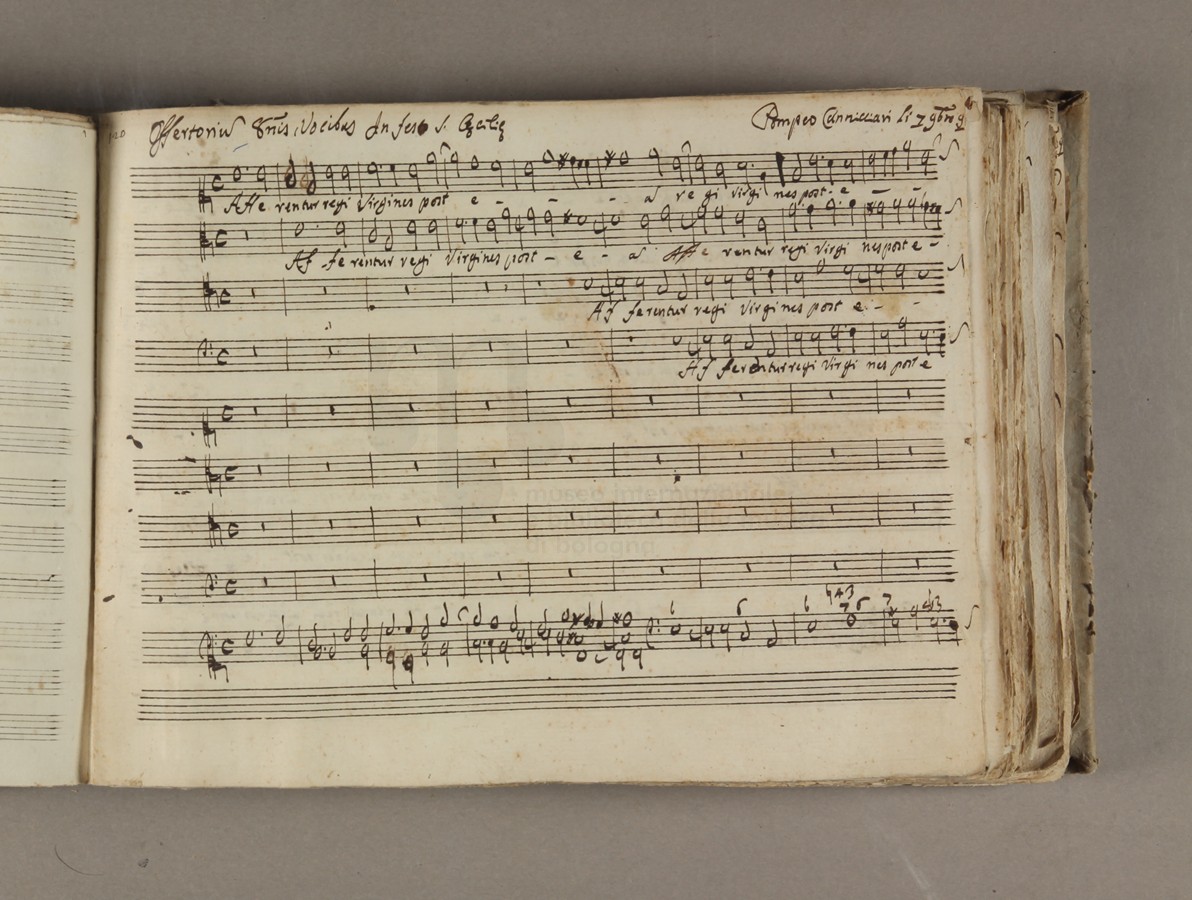 Offertoriũ 8nis Vocibus In festo S. Cęcilię
Pompeo Cannicciari li 7 9bre
Affe rentur regi Virgines post e - - - - a re gi virgi nes post - e - -
Af - fe rentur regi Virgines post - e - a Affe rentur regi virgi nes post e -
Af ferentur regi Virgines post e - -
Af ferentur regi Virgi nes post e
museo internazionale
di bologna